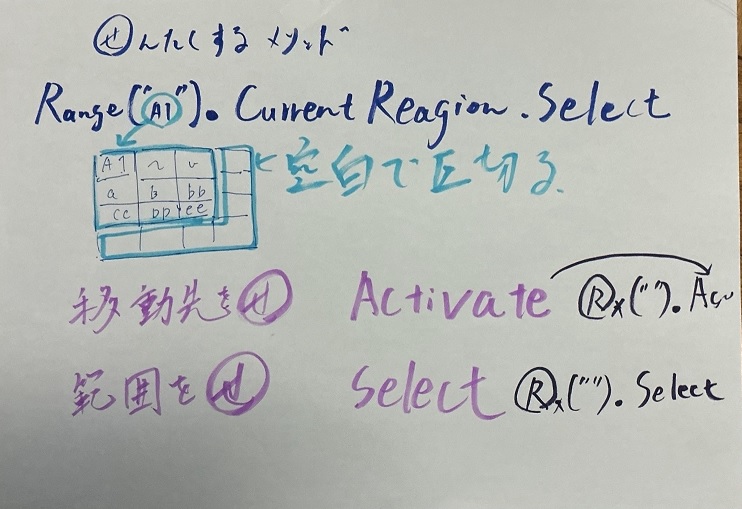 ㋝んたくする メソッド
Range("A1").Current Reagion.Select
A1 ~ ~
a b bb
cc bb ee
空白で区切る
移動先を㋝ Activate Ⓡx("").Acv
範囲を㋝ Select Ⓡx("").Select